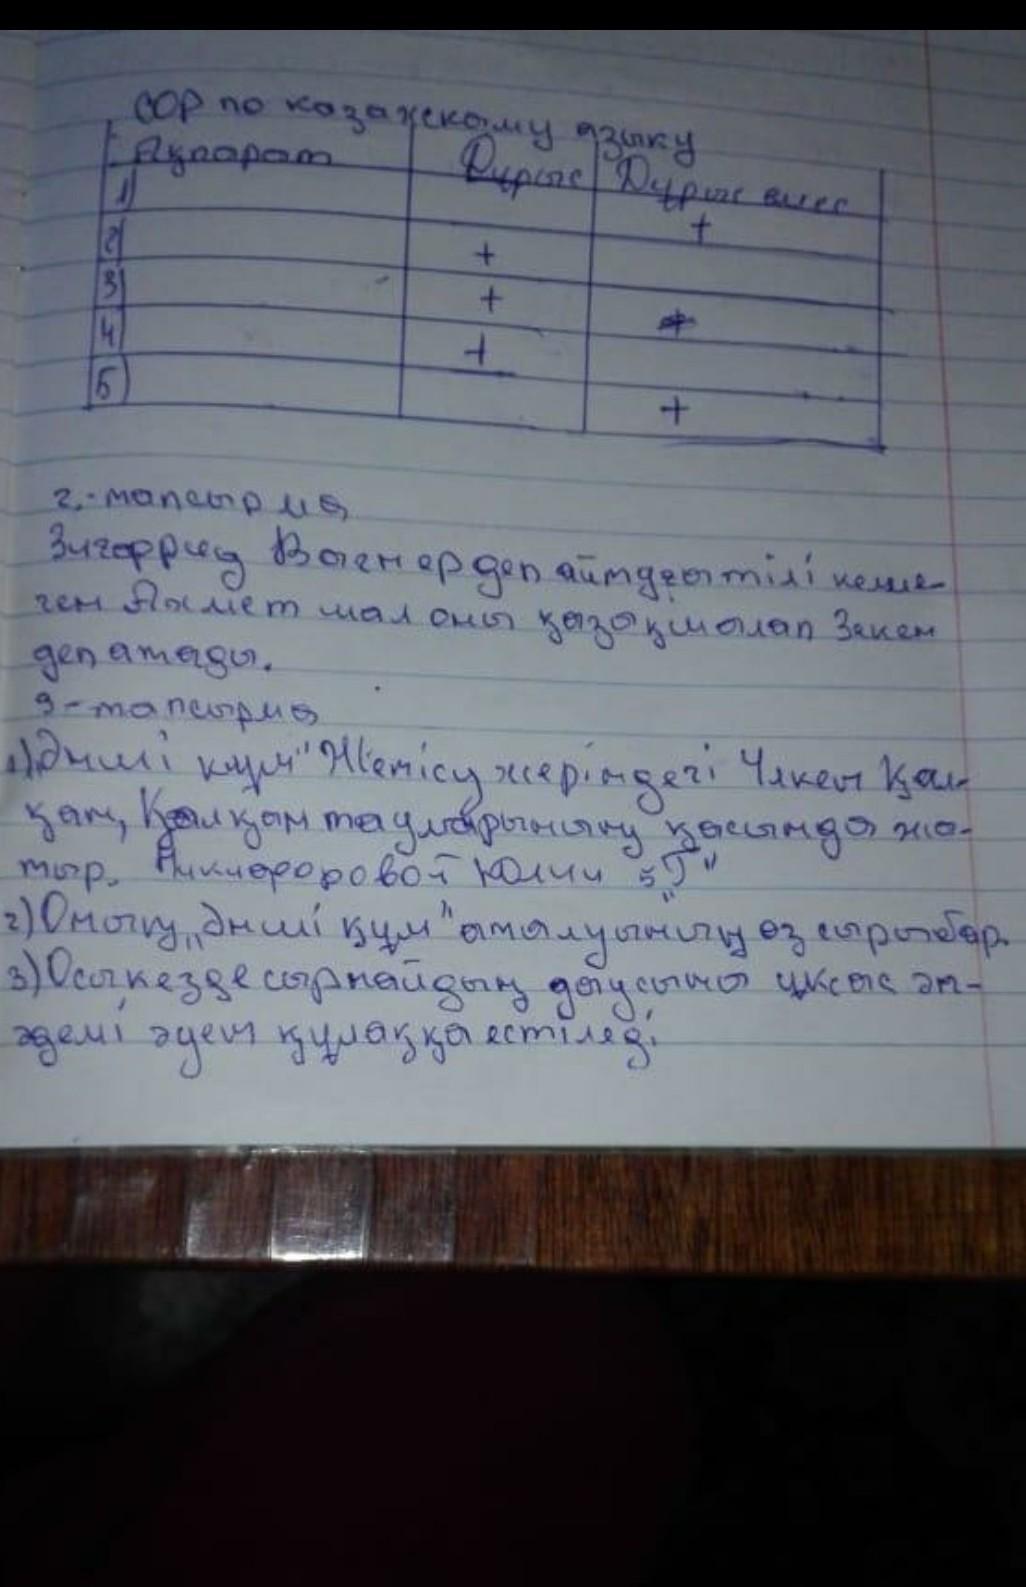 СОР по казахскому языку
Ақпарат Дұрыс Дұрыс емес
1) +
2) +
3) +
4) +
5) +
2.-тапсырма
Зигфрид Вагнер деп айтуғы тілі келме-
ген Ахмет шал оны қазақшалап Зекен
деп атады.
3-тапсырма
1) Әнші құм" Жетісу жеріндегі Үлкен Қал-
қан, Қалқан тауларының қасында жа-
тыр. Никифоровой Юлии 5 "Г"
2) Оның „Әнші құм" аталуының өз сыры бар.
3) Осы кезде сырнайдың даусына ұксас ән-
әдемі әуен құлаққа естіледі.